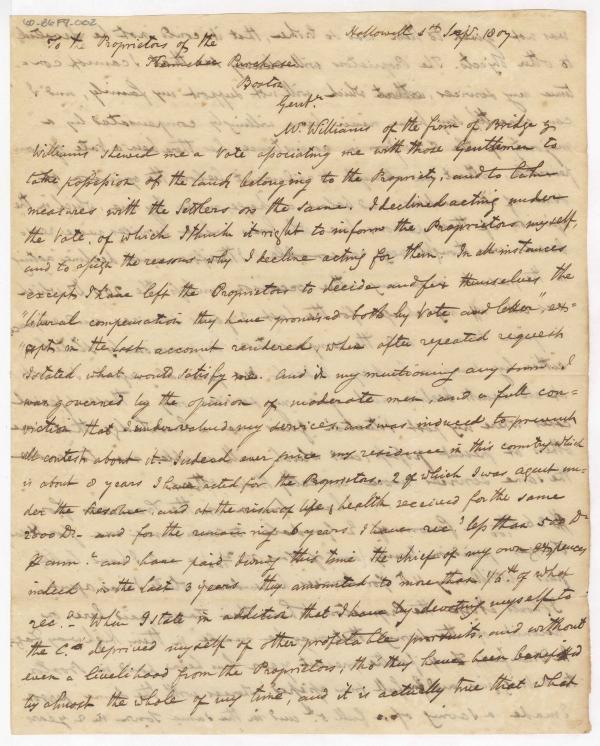 60-2679-002
Hallowell 5th Sept. 1807
To the Proprietors of the
Kennebec Purchase
Boston
Gentn.
Mr. Williams of the firm of Bridge &
Williams shewed me a Vote associating me with those Gentlemen to
take possession of the lands belonging to the Propriety, and to take
measures with the Settlers on the same. I declined acting under
the Vote, of which I think it right to inform the Proprietors myself,
and to assign the reasons why I decline acting for them. In all instances
except I have left the Proprietors to decide and fix themselves the
"liberal compensation they have promised both by Vote and letter", ex=
"cept" in the last account rendered, when after repeated request
I stated what would satisfy me. And in my mentioning any sum I
was governed by the opinion of moderate men, and a full con=
viction that I undervalued my services, and was induced to prevent
all contest about it. Indeed ever since my residence in this country which
is about 8 years I have acted for the Proprietors. 2 of which I was agent un=
der the Resolve, and at the risk of life & health received for the same
2000 Ds. and for the remaining 6 years I have recd less than 500 Ds
P ann. and have paid during this time the chief of my own expences,
indeed in the last 3 years they amounted to more than 1/6th of what
recd. When I state in addition that I have by devoting myself to
the Co. deprived myself of other profitable pursuits, and without
even a livelihood from the Proprietors, tho' they have been benefited
by almost the whole of my time, and it is actually true that what